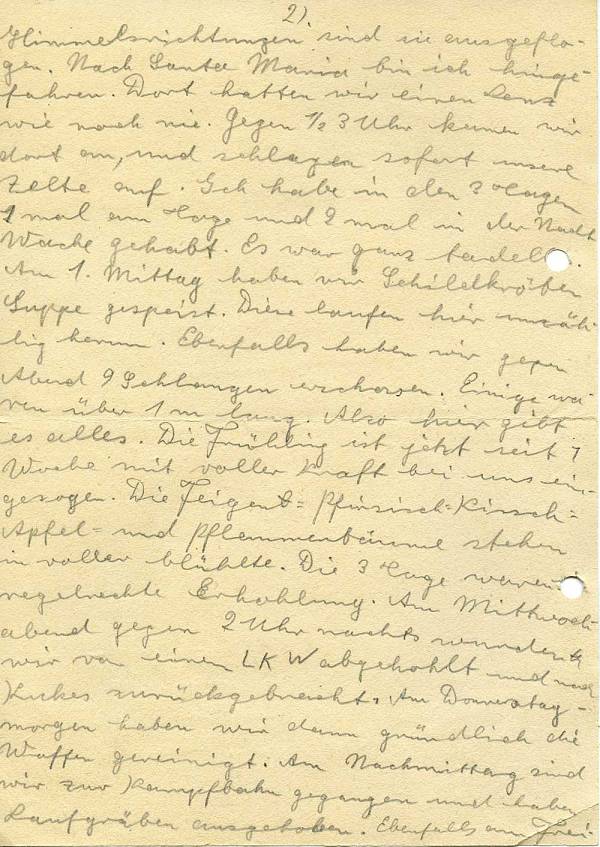 2).
Himmelsrichtungen sind sie ausgeflo-
gen. Nach Santa Maria bin ich hinge-
fahren. Dort hatten wir einen Lenz
wie noch nie. Gegen 1/2 3 Uhr kamen wir
dort an, und schlagen sofort unsere
Zelte auf. Ich habe in den 3 Tagen
1 mal am Tage und 2 mal in der Nacht
Wache gehabt. Es war ganz tadell .
Am 1. Mittag haben wir Schildkröten
Suppe gespeist. Diese laufen hier unzäh-
lig herum. Ebenfalls haben wir gegen
Abend 9 Schlangen erschossen. Einige wa-
ren über 1 m lang. Also hier gibt
es alles. Die Frühling ist jetzt seit 1
Woche mit voller Kraft bei uns ein-
gezogen. Die Feigent= Pfirsisch=Kirsch=
Apfel= und Pflammenbäume stehen
in voller blühlte. Die 3 Tage waren
regelrechte Erhohlung. Am Mittwoch-
abend gegen 2 Uhr nachts wurden
wir von einen LKW abgehohlt und nach
Kukes zurückgebracht. Am Donnerstag-
morgen haben wir dann gründlich die
Waffen gereinigt. Am Nachmittag sind
wir zur Kampfbahn gegangen und haben
Laufgräben ausgehoben. Ebenfalls am Frei-